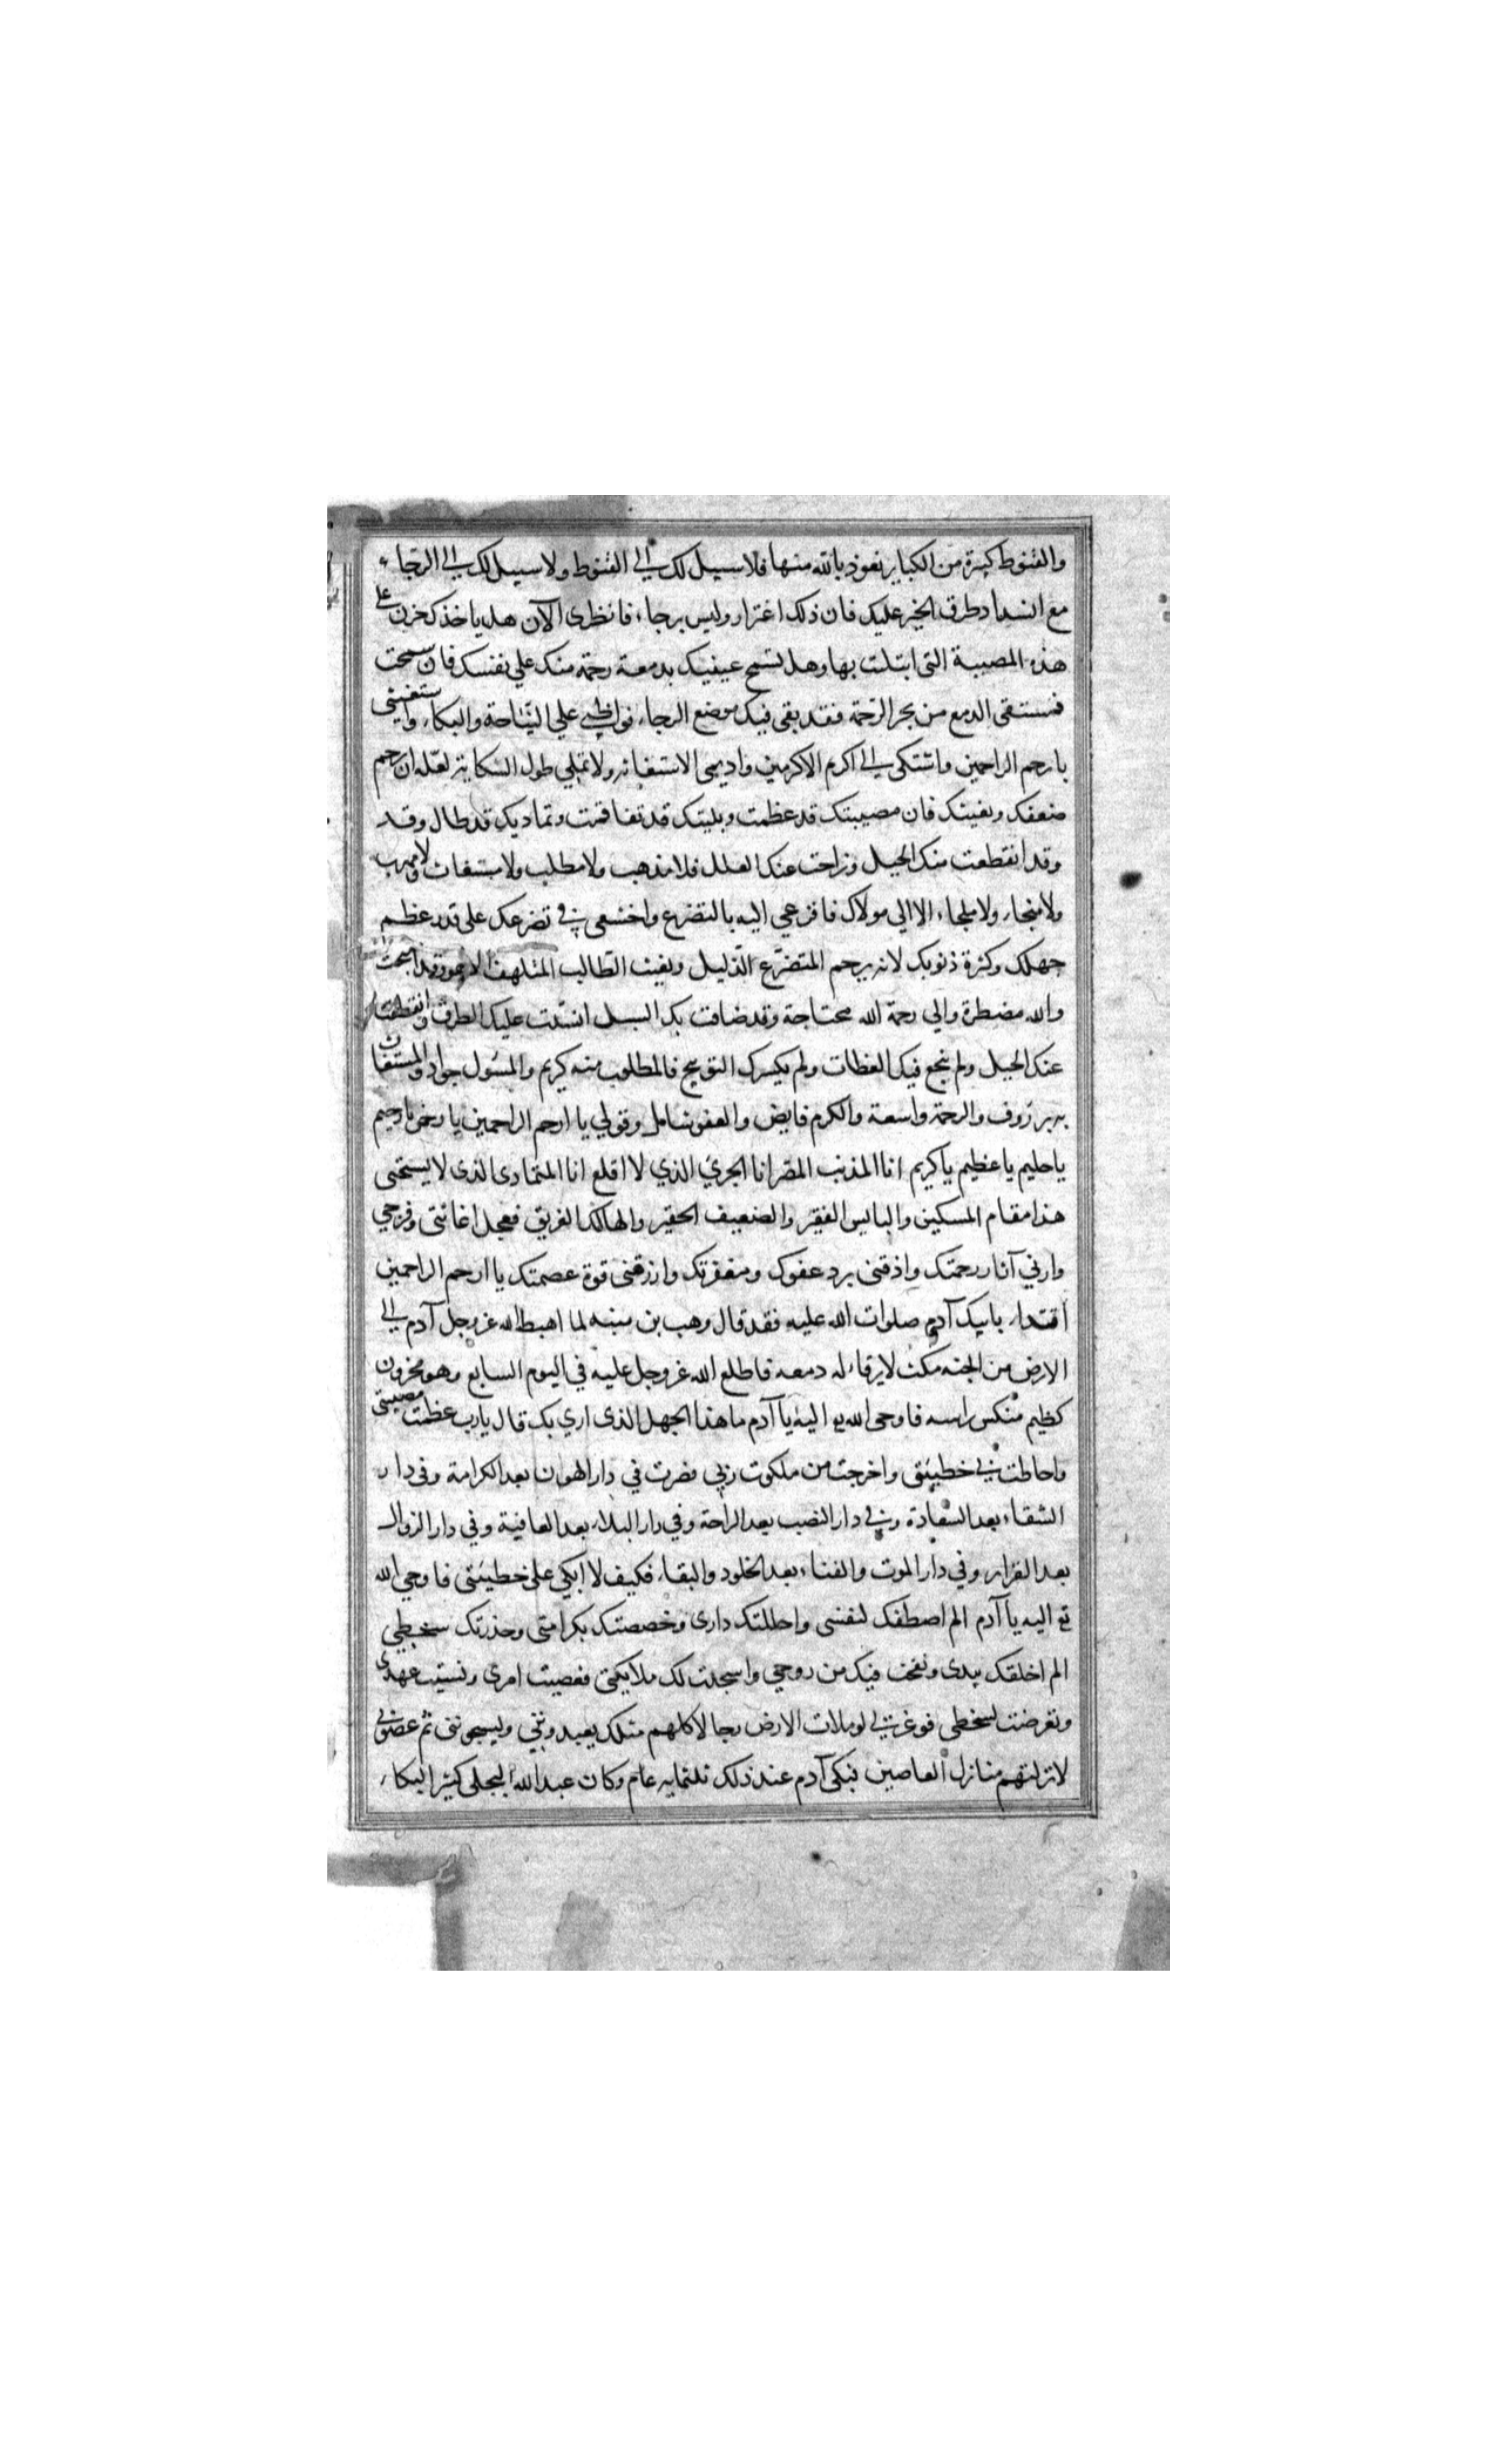 والقنوط كبيرة من الكباير نعوذ بالله منها فلا سبيل لك الى القنوط ولا سبيل لك الى الرجاء
مع انسداد طرق الخير عليك فان ذلك اغترار وليس برجاء فانظرى الآن هل ياخذك حزن على
هذه المصيبة التى ابتليت بها وهل تسمح عينيك بدمعة رحمة منك علي نفسك فان سمحت
فمستقى الدمع من بحر الرحمة فقد بقى فيك موضع الرجاء فواظبى علي النياحة والبكاء واستغيثى
بارحم الراحمين واشتكى الى اكرم الاكرمين واديمى الاستغاثه ولا تملي طول الشكاية لعله ان يرحم
ضعفك ويغيثك فان مصيبتك قد عظمت وبليتك قد تفاقمت وتماديك قد طال وقد
وقد انقطعت منك الحيل وزاحت عنك العلل فلا مذهب ولا مطلب ولا مستغاث ولا مهرب
ولا منجاء ولا ملجاء الا الي مولاك فافزعي اليه بالتضرع واخشعى في تضرعك على قدر عظم
جهلك وكثرة ذنوبك لانه يرحم المتضرع الذليل ويغيث الطالب المتلهف وقد اصبحت
والله مضطرة والي رحمة الله محتاجة وقد ضاقت بك السبل انسدت عليك الطرق وانقطعت
عنك الحيل ولم ينجع فيك العظات ولم يكسرك التوبيخ فالمطلوب منه كريم والمسئول جواد والمستغاث
به بر رؤف والرحمة واسعة والكرم فايض والعفو شامل وقولي يا ارحم الراحمين يا رحمن يا رحيم
يا حليم يا عظيم يا كريم انا المذنب المصر انا الجري الذي لا اقلع انا المتمادى الذى لا يستحيى
هذا مقام المسكين والبايس الفقير والضعيف الحقير والهالك الغريق فعجل اغاثتى وفرجي
وارني آثار رحمتك واذقنى برد عفوك ومغفرتك وارزقنى قوة عصمتك يا ارحم الراحمين
اقتداء بابيك آدم صلوات الله عليه فقد قال وهب بن منبه لما اهبط الله عز وجل آدم الى
الارض من الجنه مكث لا يرقاء له دمعه فاطلع الله عز وجل عليه في اليوم السابع وهو محزون
كظيم منكس راسه فاوحى الله تع اليه يا آدم ما هذا الجهل الذى اري بك قال يا رب عظمت مصيبتى
واحاطت بى خطيئتى واخرجت من ملكوت ربي فصرت في دار الهوان بعد الكرامة وفى دار
الشقاء بعد السعادة وفى دار النصب بعد الراحة وفي دار البلاء بعد العافية وفي دار الزوال
بعد القرار وفي دار الموت والفناء بعد الخلود والبقاء فكيف لا ابكي على خطيئتى فاوحي الله
تع اليه يا آدم الم اصطفك لنفسى واحللتك دارى وخصصتك بكرامتى وحذرتك سخطي
الم اخلقك بيدى ونفخت فيك من روحي واسجدت لك ملايكتى فعصيت امرى ونسيت عهدى
وتعرضت لسخطي فوعزتى لو ملات الارض رجالا كلهم مثلك يعبدونني ويسبحوننى ثم عصونى
لانزلتهم منازل العاصين فبكى آدم عند ذلك ثلثمايه عام وكان عبد الله البجلى كثير البكاء